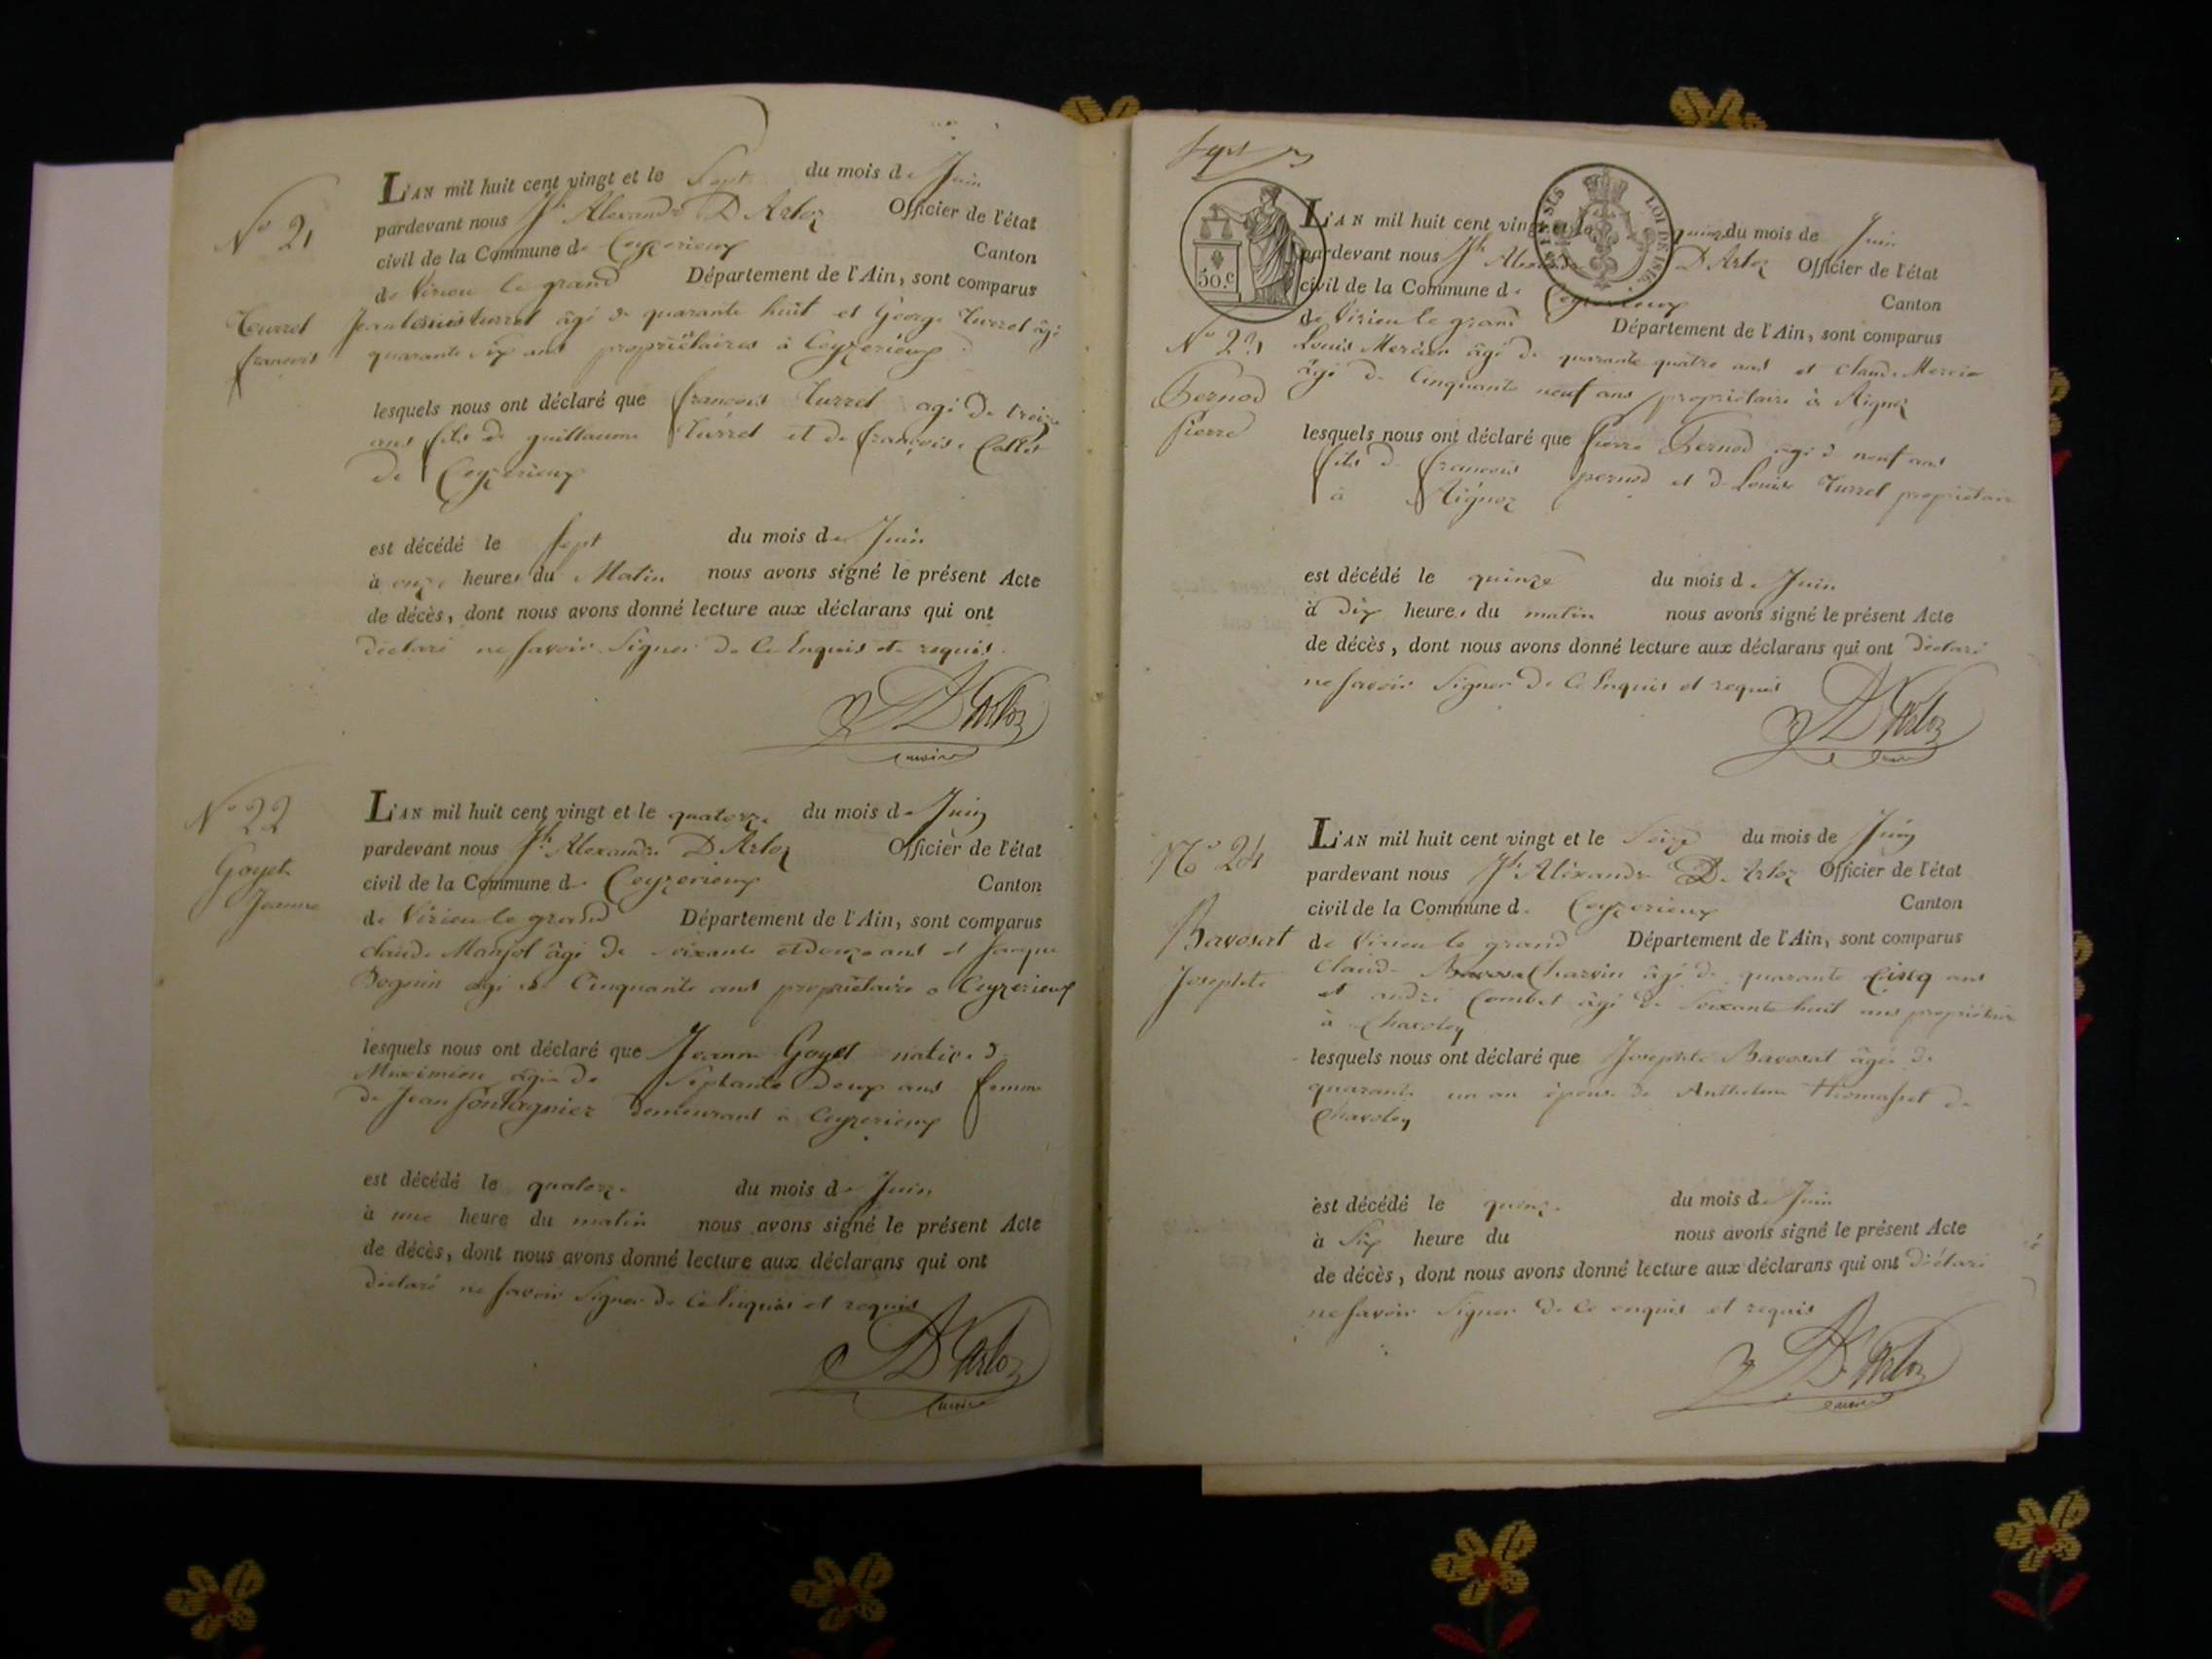 N° 21
Turrel
francois
L'AN mil huit cent vingt et le Sept du mois de Juin
pardevant nous Jh Alexandre D'Arloz Officier de l'état
civil de la Commune de Ceyzerieux Canton
de Virieu le grand Département de l'Ain, sont comparus
Jean louis turrel âgé de quarante huit et George Turrel âgé
quarante six ans propriétaires à Ceyzerieux
lesquels nous ont déclaré que francois Turrel agé de treize
ans fils de guillaume Turrel et de françoise Collet
de Ceyzerieux
est décédé le sept du mois de Juin
à onze heures du Matin nous avons signé le présent Acte
de décès, dont nous avons donné lecture aux déclarans qui ont
déclaré ne savoir Signer de Ce Enquis et requis.
D'Arloz
maire
N° 22
Goyet
Jeanne
L'AN mil huit cent vingt et le quatorze du mois de Juin
pardevant nous Jh Alexandre D'Arloz Officier de l'état
civil de la Commune de Ceyzerieux Canton
de Virieu le grand Département de l'Ain, sont comparus
claude Manjot âgé de soixante et douze ans et Jacque
Boguin agé de Cinquante ans propriétaire a Ceyzerieux
lesquels nous ont déclaré que Jeanne Goyet native de
Meximieu agée de Septante deux ans femme
de Jean fontagnier demeurant à Ceyzerieux
est décédé le quatorze du mois de Juin
à une heure du matin nous avons signé le présent Acte
de décès, dont nous avons donné lecture aux déclarans qui ont
déclaré ne savoir Signer de Ce Enquis et requis
D'Arloz
maire
50.c
LOI DE 1816
N° 23
Pernod
Pierre
L'AN mil huit cent vingt et le quinze du mois de Juin
pardevant nous Jh Alexandre D'Arloz Officier de l'état
civil de la Commune de Ceyzerieux Canton
de Virieu le grand Département de l'Ain, sont comparus
Louis Mercier âgé de quarante quatre ans et Claude Mercier
âgé de Cinquante neuf ans propriétaire à Aignoz
lesquels nous ont déclaré que Pierre Pernod agé d neuf ans
fils de francois pernod et de Louise Turrel propriétaire
à Aignoz
est décédé le quinze du mois de Juin
à dix heures du matin nous avons signé le présent Acte
de décès, dont nous avons donné lecture aux déclarans qui ont déclaré
ne savoir Signer de Ce Enquis et requis
D'Arloz
maire
N° 24
Bavosat
Josephte
L'AN mil huit cent vingt et le Seize du mois de Juin
pardevant nous Jh Alexandre D'Arloz Officier de l'état
civil de la Commune de Ceyzerieux Canton
de Virieu le grand Département de l'Ain, sont comparus
Claude Charvin âgé de quarante Cinq ans
et andré Combet âgé de Soixante huit ans propriétaire
à Chavoley
lesquels nous ont déclaré que Josephte Bavosat âgée de
quarante un an épouse de Anthelme Thomasset de
Chavoley
est décédé le quinze du mois de Juin
à Six heure du nous avons signé le présent Acte
de décès, dont nous avons donné lecture aux déclarans qui ont déclaré
ne savoir Signer de Ce enquis et requis
D'Arloz
maire